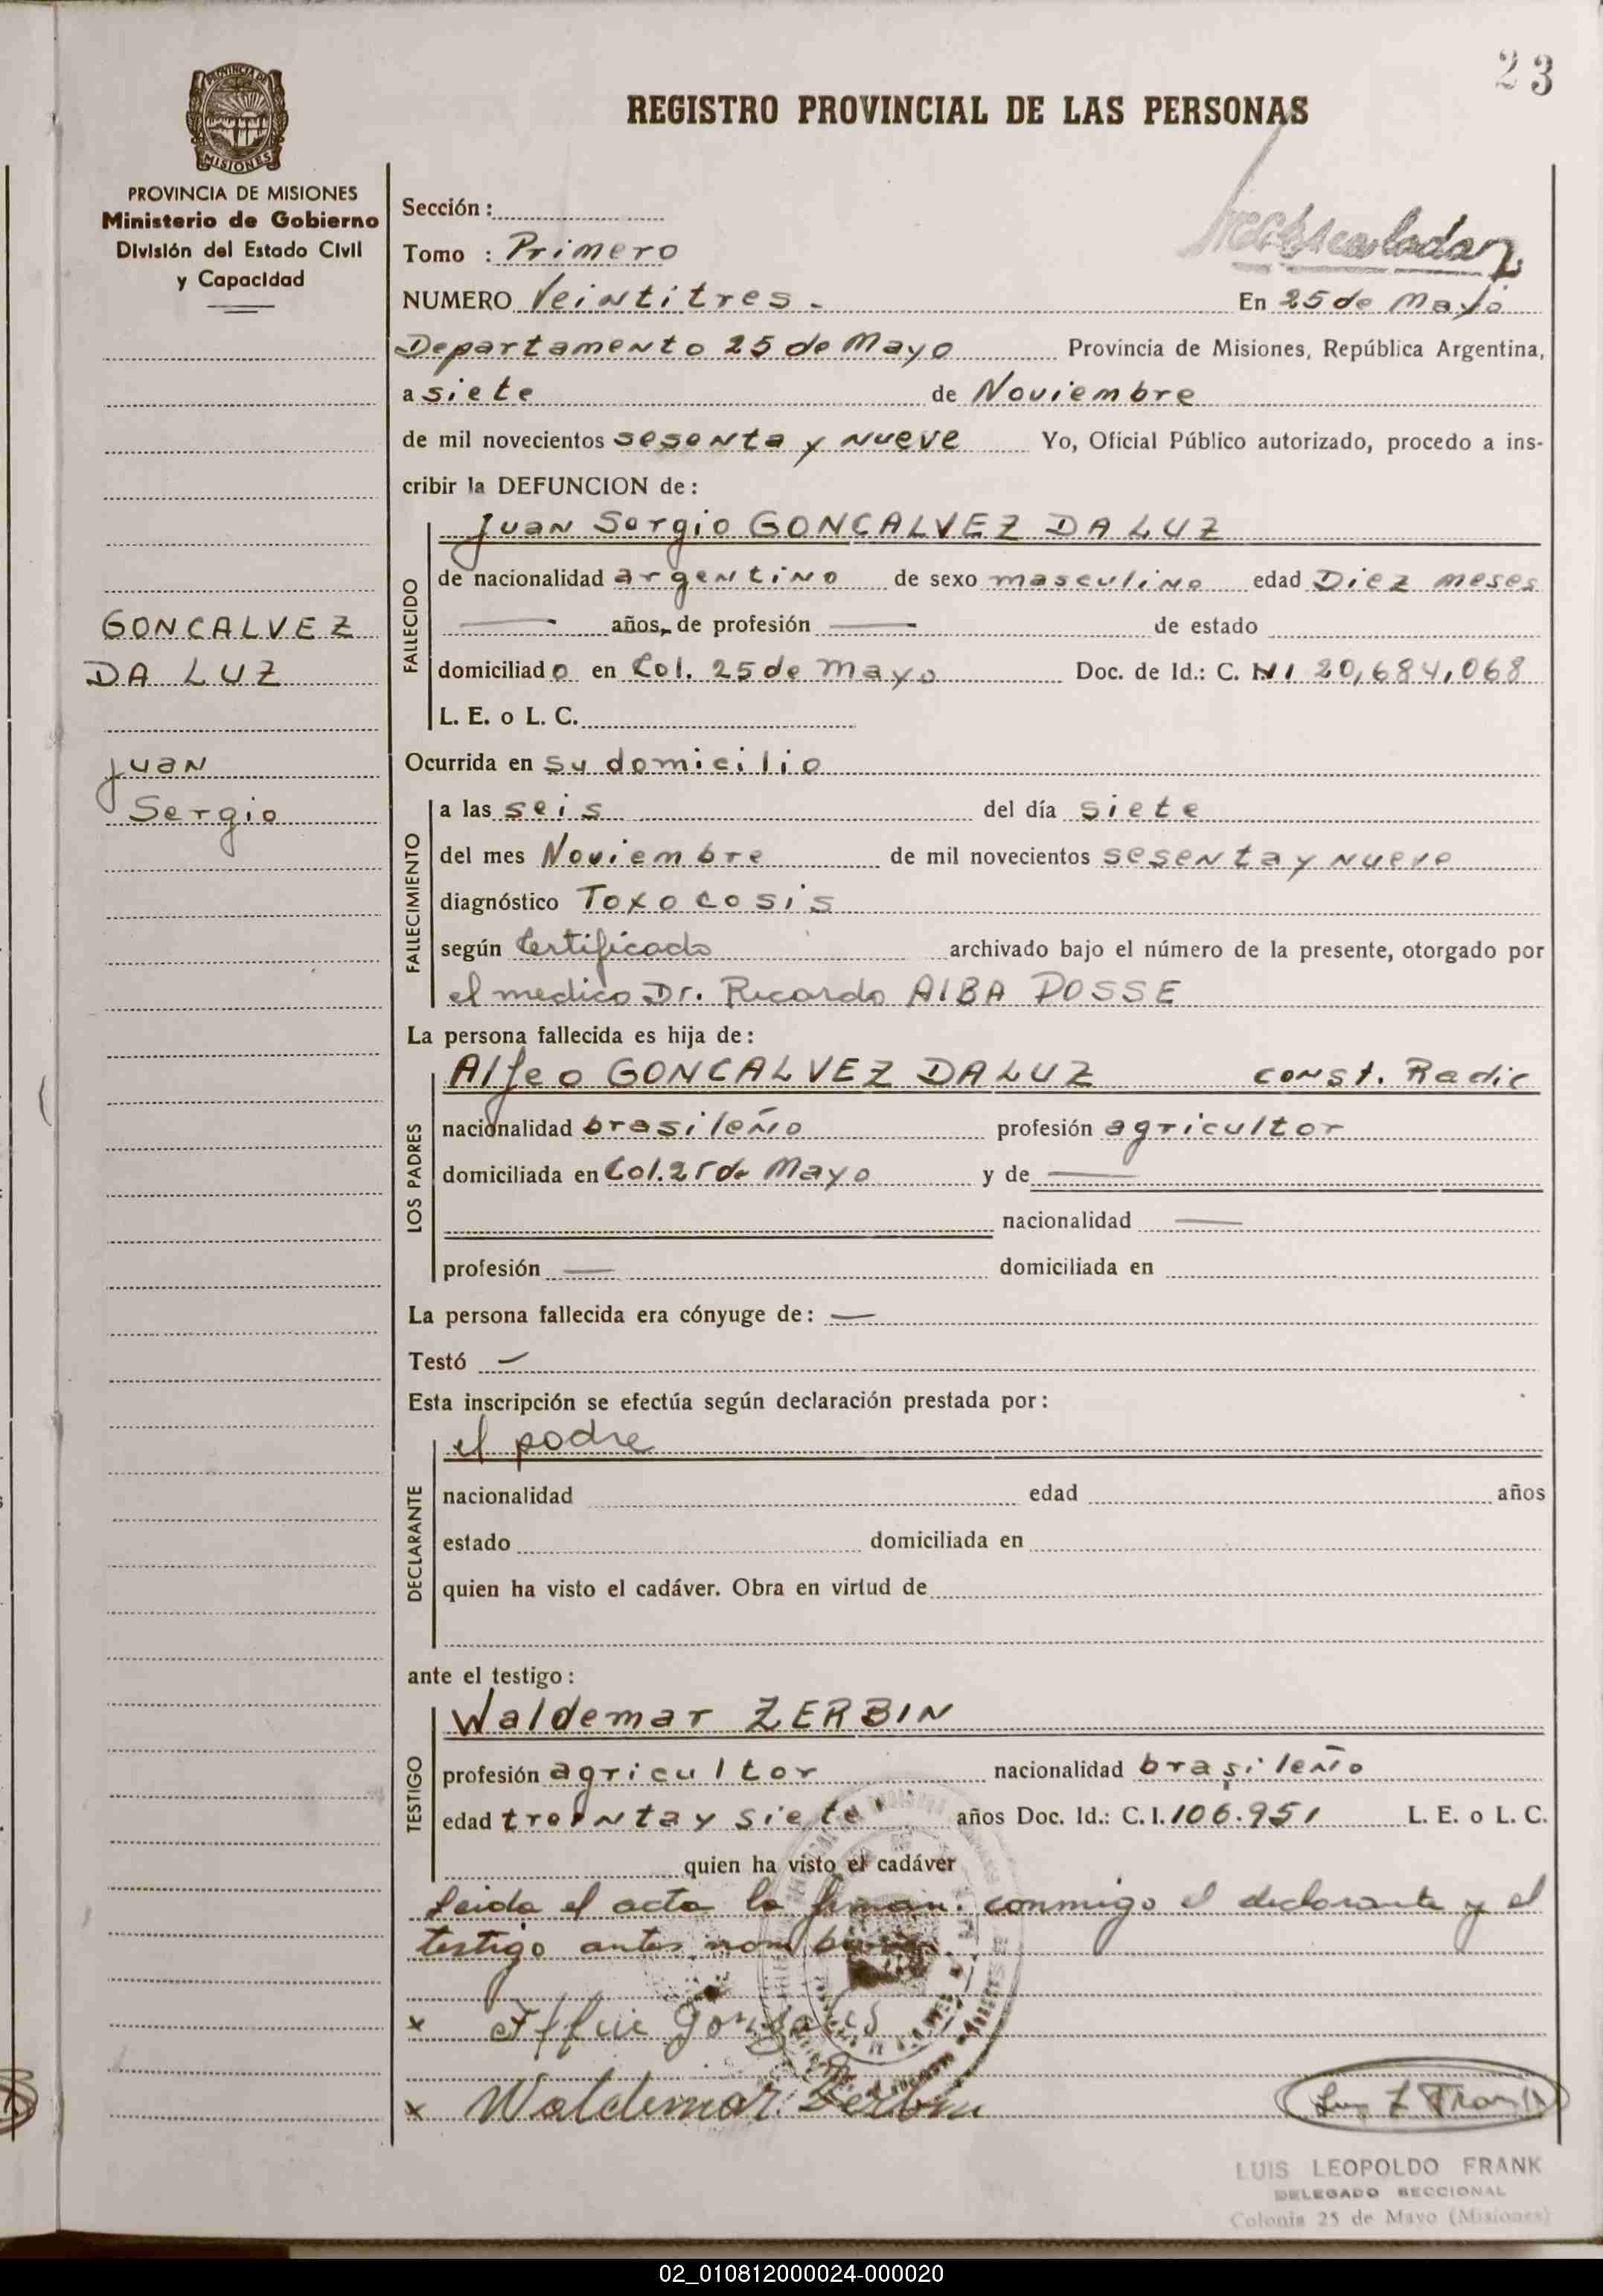 23
REGISTRO PROVINCIAL DE LAS PERSONAS
PROVINCIA DE MISIONES
MISIONES
PROVINCIA DE MISIONES
Ministerio de Gobierno
División del Estado Civil
y Capacidad
GONCALVEZ
DA LUZ
Juan
Sergio
Sección:
Tomo : Primero
NUMERO Veintitres.- En 25 de Mayo
Departamento 25 de Mayo Provincia de Misiones, República Argentina,
a siete de Noviembre
de mil novecientos sesenta y nueve Yo, Oficial Público autorizado, procedo a ins-
cribir la DEFUNCION de:
Juan Sergio GONCALVEZ DA LUZ
FALLECIDO
de nacionalidad argentino de sexo masculino edad Diez meses
— años, de profesión — de estado
domiciliado en Col. 25 de Mayo Doc. de Id.: C. NI 20,684,068
L. E. o L. C.
Ocurrida en su domicilio
FALLECIMIENTO
a las seis del día siete
del mes Noviembre de mil novecientos sesenta y nueve
diagnóstico Toxocosis
según Certificado archivado bajo el número de la presente, otorgado por
el medico Dr. Ricardo ALBA POSSE
La persona fallecida es hija de:
Alfeo GONCALVEZ DA LUZ const. Radic
LOS PADRES
nacionalidad brasileño profesión agricultor
domiciliada en Col. 25 de Mayo y de —
nacionalidad —
profesión — domiciliada en
La persona fallecida era cónyuge de: —
Testó —
Esta inscripción se efectúa según declaración prestada por:
el padre
DECLARANTE
nacionalidad edad años
estado domiciliada en
quien ha visto el cadáver. Obra en virtud de
ante el testigo:
Waldemar ZERBIN
TESTIGO
profesión agricultor nacionalidad brasileño
edad treinta y siete años Doc. Id.: C. I. 106.951 L. E. o L. C.
quien ha visto el cadáver
Leida el acta la firman conmigo el declarante y el
testigo antes
x
x Waldemar Zerbin
LUIS LEOPOLDO FRANK
DELEGADO SECCIONAL
Colonia 25 de Mayo (Misiones)
02_010812000024-000020